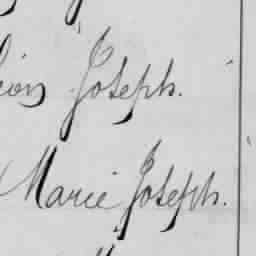 Joseph.
Marie Joseph.